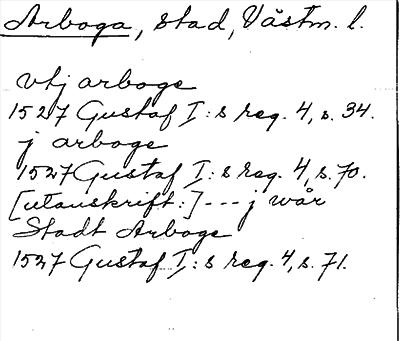 Arboga, stad, Västm. l.
vtj arboge
1527 Gustaf I:s reg. 4, s. 34.
j arboge
1527 Gustaf I:s reg. 4, s. 70.
[utanskrift:] --- j wår
Stadt Arboge
1527 Gustaf I:s reg. 4, s. 71.